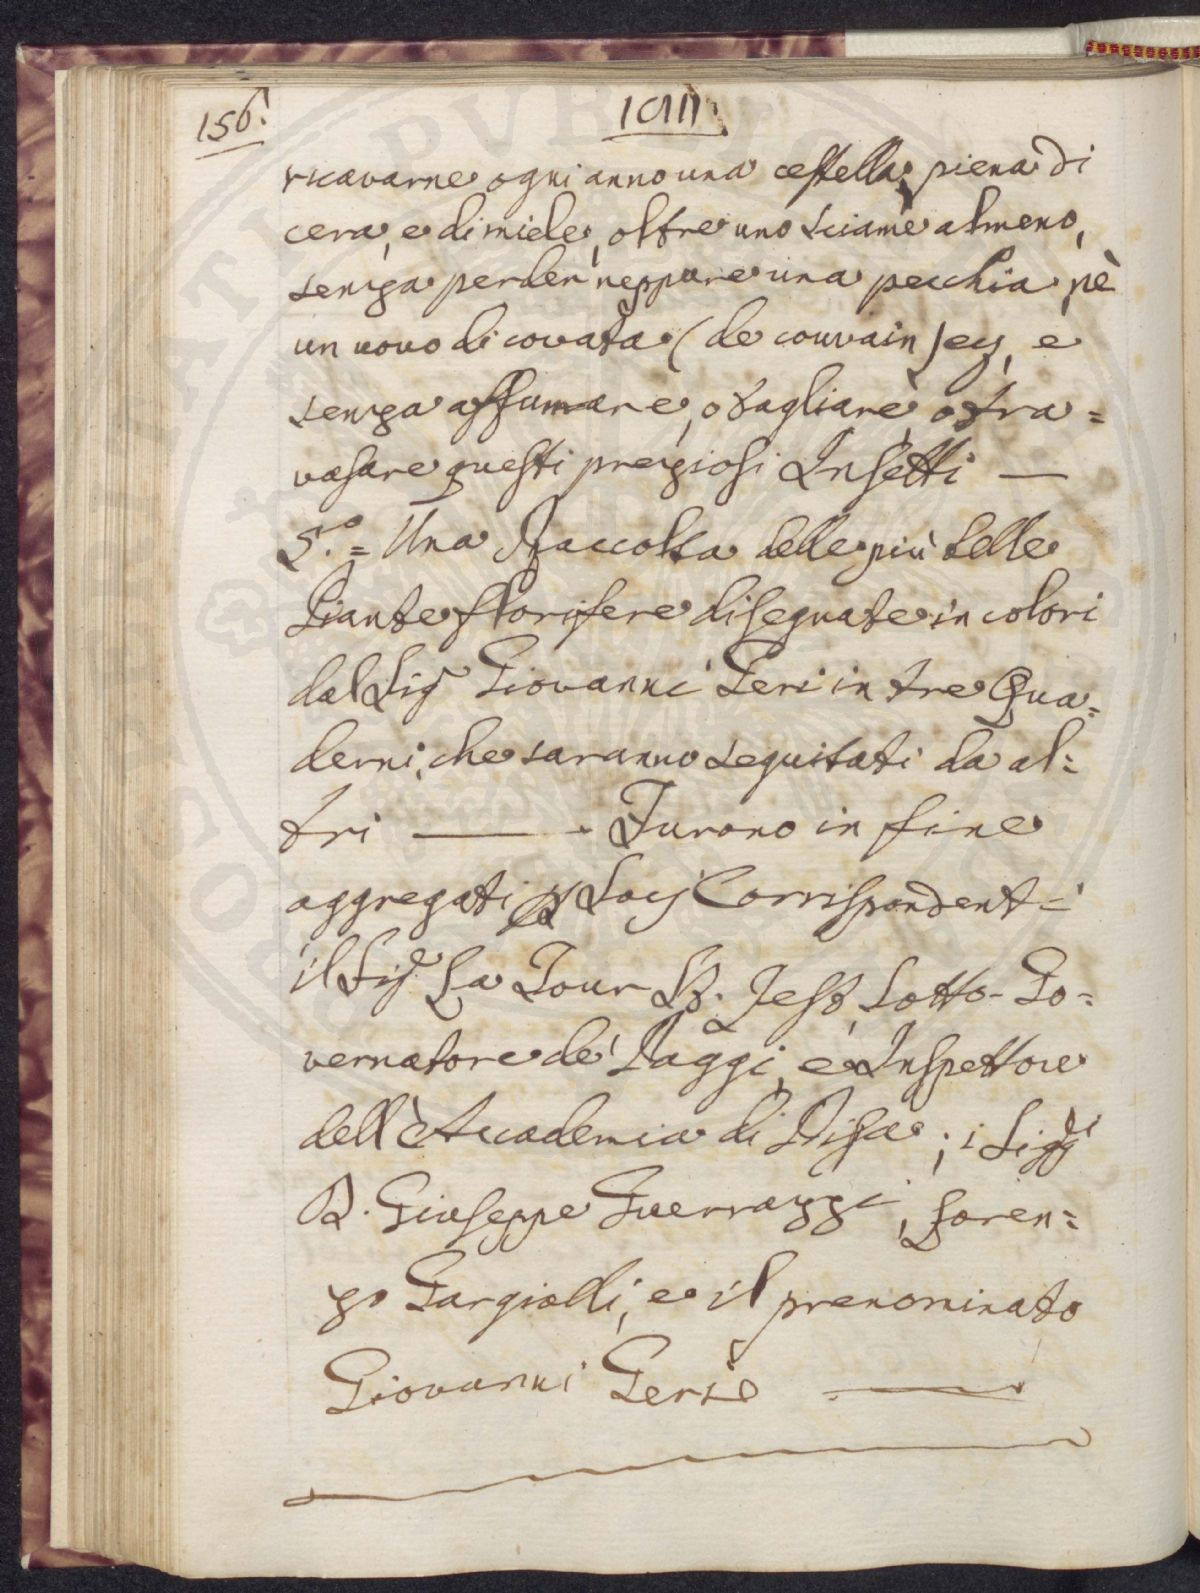 156.
ricavarne ogni anno una cestella piena di
cera, e di miele, oltre uno sciame almeno,
senza perder neppure una pecchia, nè
un uovo di covata (de couvain) ec, e
senza affumare, o tagliare, o tra=
vasare questi preziosi Insetti —
5.° = Una Raccolta delle più belle
Piante florifere disegnate in colori
dal Sig.r Giovanni Geri in tre Qua=
derni, che saranno seguitati da al=
tri ——— Furono in fine
aggregati Socj Corrispondenti
il Sig.e La Tour Sotto-Go=
vernatore de' Paggi, e Inspettore
dell'Accademia di Pisa; i Sigg.ri
D. Giuseppe Guerrazzi, Loren=
zo Gargiolli, e il prenominato
Giovanni Geri ———